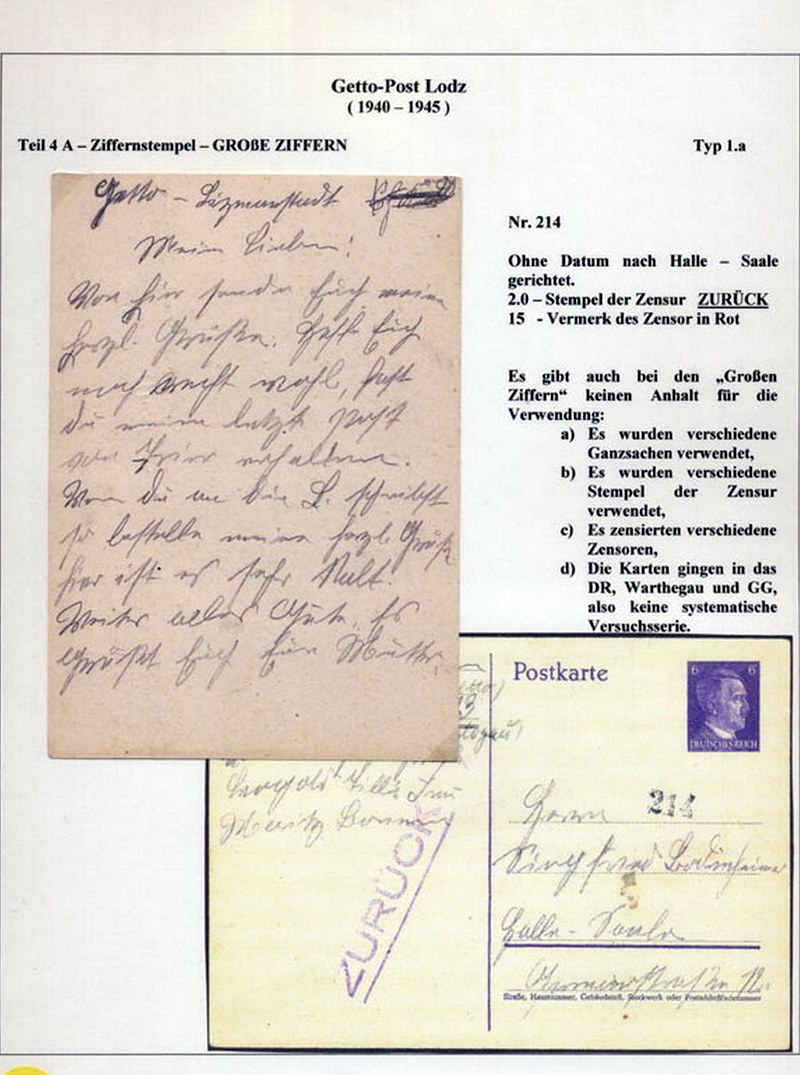 Getto-Post Lodz
( 1940 – 1945 )
Teil 4 A – Ziffernstempel – GROßE ZIFFERN
Typ 1.a
Getto – Lizmanstadt
Meine Lieben!
Von hier sende Euch meine
herzl. Grüße. Hoffe Euch
noch recht wohl, habt
du meine letzte Post
von hier erhalten.
Wenn du an die L. schreibst
so bestelle meine herzl. Grüße
hier ist es sehr kalt.
Weiter alles Gute. Es
Grüßt Euch Eure Mutter.
Nr. 214
Ohne Datum nach Halle – Saale
gerichtet.
2.0 – Stempel der Zensur ZURÜCK
15 - Vermerk des Zensor in Rot
Es gibt auch bei den „Großen
Ziffern“ keinen Anhalt für die
Verwendung:
a) Es wurden verschiedene
Ganzsachen verwendet,
b) Es wurden verschiedene
Stempel der Zensur
verwendet,
c) Es zensierten verschiedene
Zensoren,
d) Die Karten gingen in das
DR, Warthegau und GG,
also keine systematische
Versuchsserie.
Postkarte
6 6
DEUTSCHES REICH
Leopold
Moritz
ZURÜCK
Herrn
214
Siegfried Bodenheimer
Halle - Saale
Straße, Hausnummer, Gebäudeteil, Stockwerk oder Postschließfachnummer